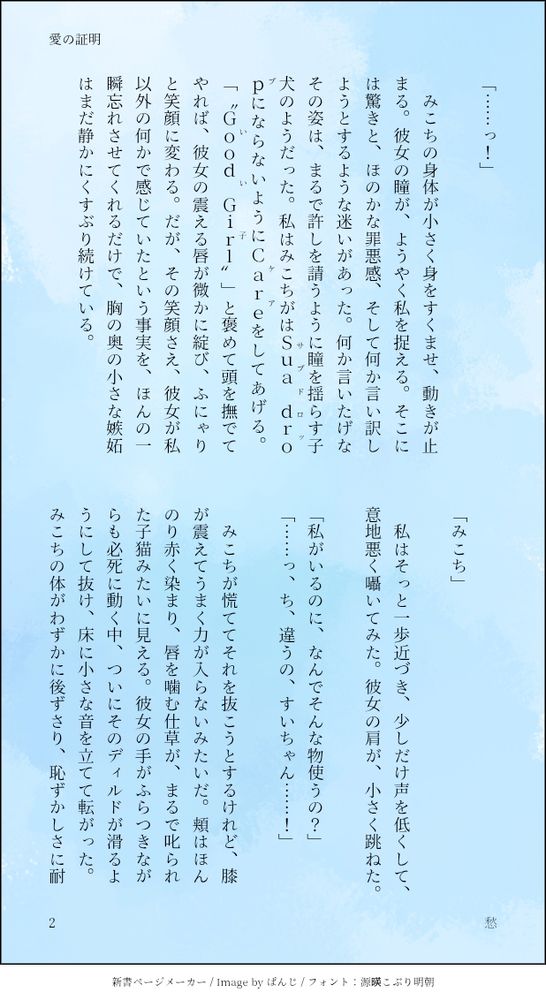 愛の証明
「……っ！」
　みこちの身体が小さく身をすくませ、動きが止
まる。彼女の瞳が、ようやく私を捉える。そこに
は驚きと、ほのかな罪悪感、そして何か言い訳し
ようとするような迷いがあった。何か言いたげな
その姿は、まるで許しを請うように瞳を揺らす子
犬のようだった。私はみこちがはSua dro
サブドロッ
pにならないようにCareをしてあげる。
プ
ケア
「〝Good Girl〟」と褒めて頭を撫でて
いい子
やれば、彼女の震える唇が微かに綻び、ふにゃり
と笑顔に変わる。だが、その笑顔さえ、彼女が私
以外の何かで感じていたという事実を、ほんの一
瞬忘れさせてくれるだけで、胸の奥の小さな嫉妬
はまだ静かにくすぶり続けている。
「みこち」
　私はそっと一歩近づき、少しだけ声を低くして、
意地悪く囁いてみた。彼女の肩が、小さく跳ねた。
「私がいるのに、なんでそんな物使うの？」
「……っ、ち、違うの、すいちゃん……！」
　みこちが慌ててそれを抜こうとするけれど、膝
が震えてうまく力が入らないみたいだ。頬はほん
のり赤く染まり、唇を噛む仕草が、まるで叱られ
た子猫みたいに見える。彼女の手がふらつきなが
らも必死に動く中、ついにそのディルドが滑るよ
うにして抜け、床に小さな音を立てて転がった。
みこちの体がわずかに後ずさり、恥ずかしさに耐
2
愁
新書ページメーカー / Image by ぱんじ / フォント：源暎こぶり明朝